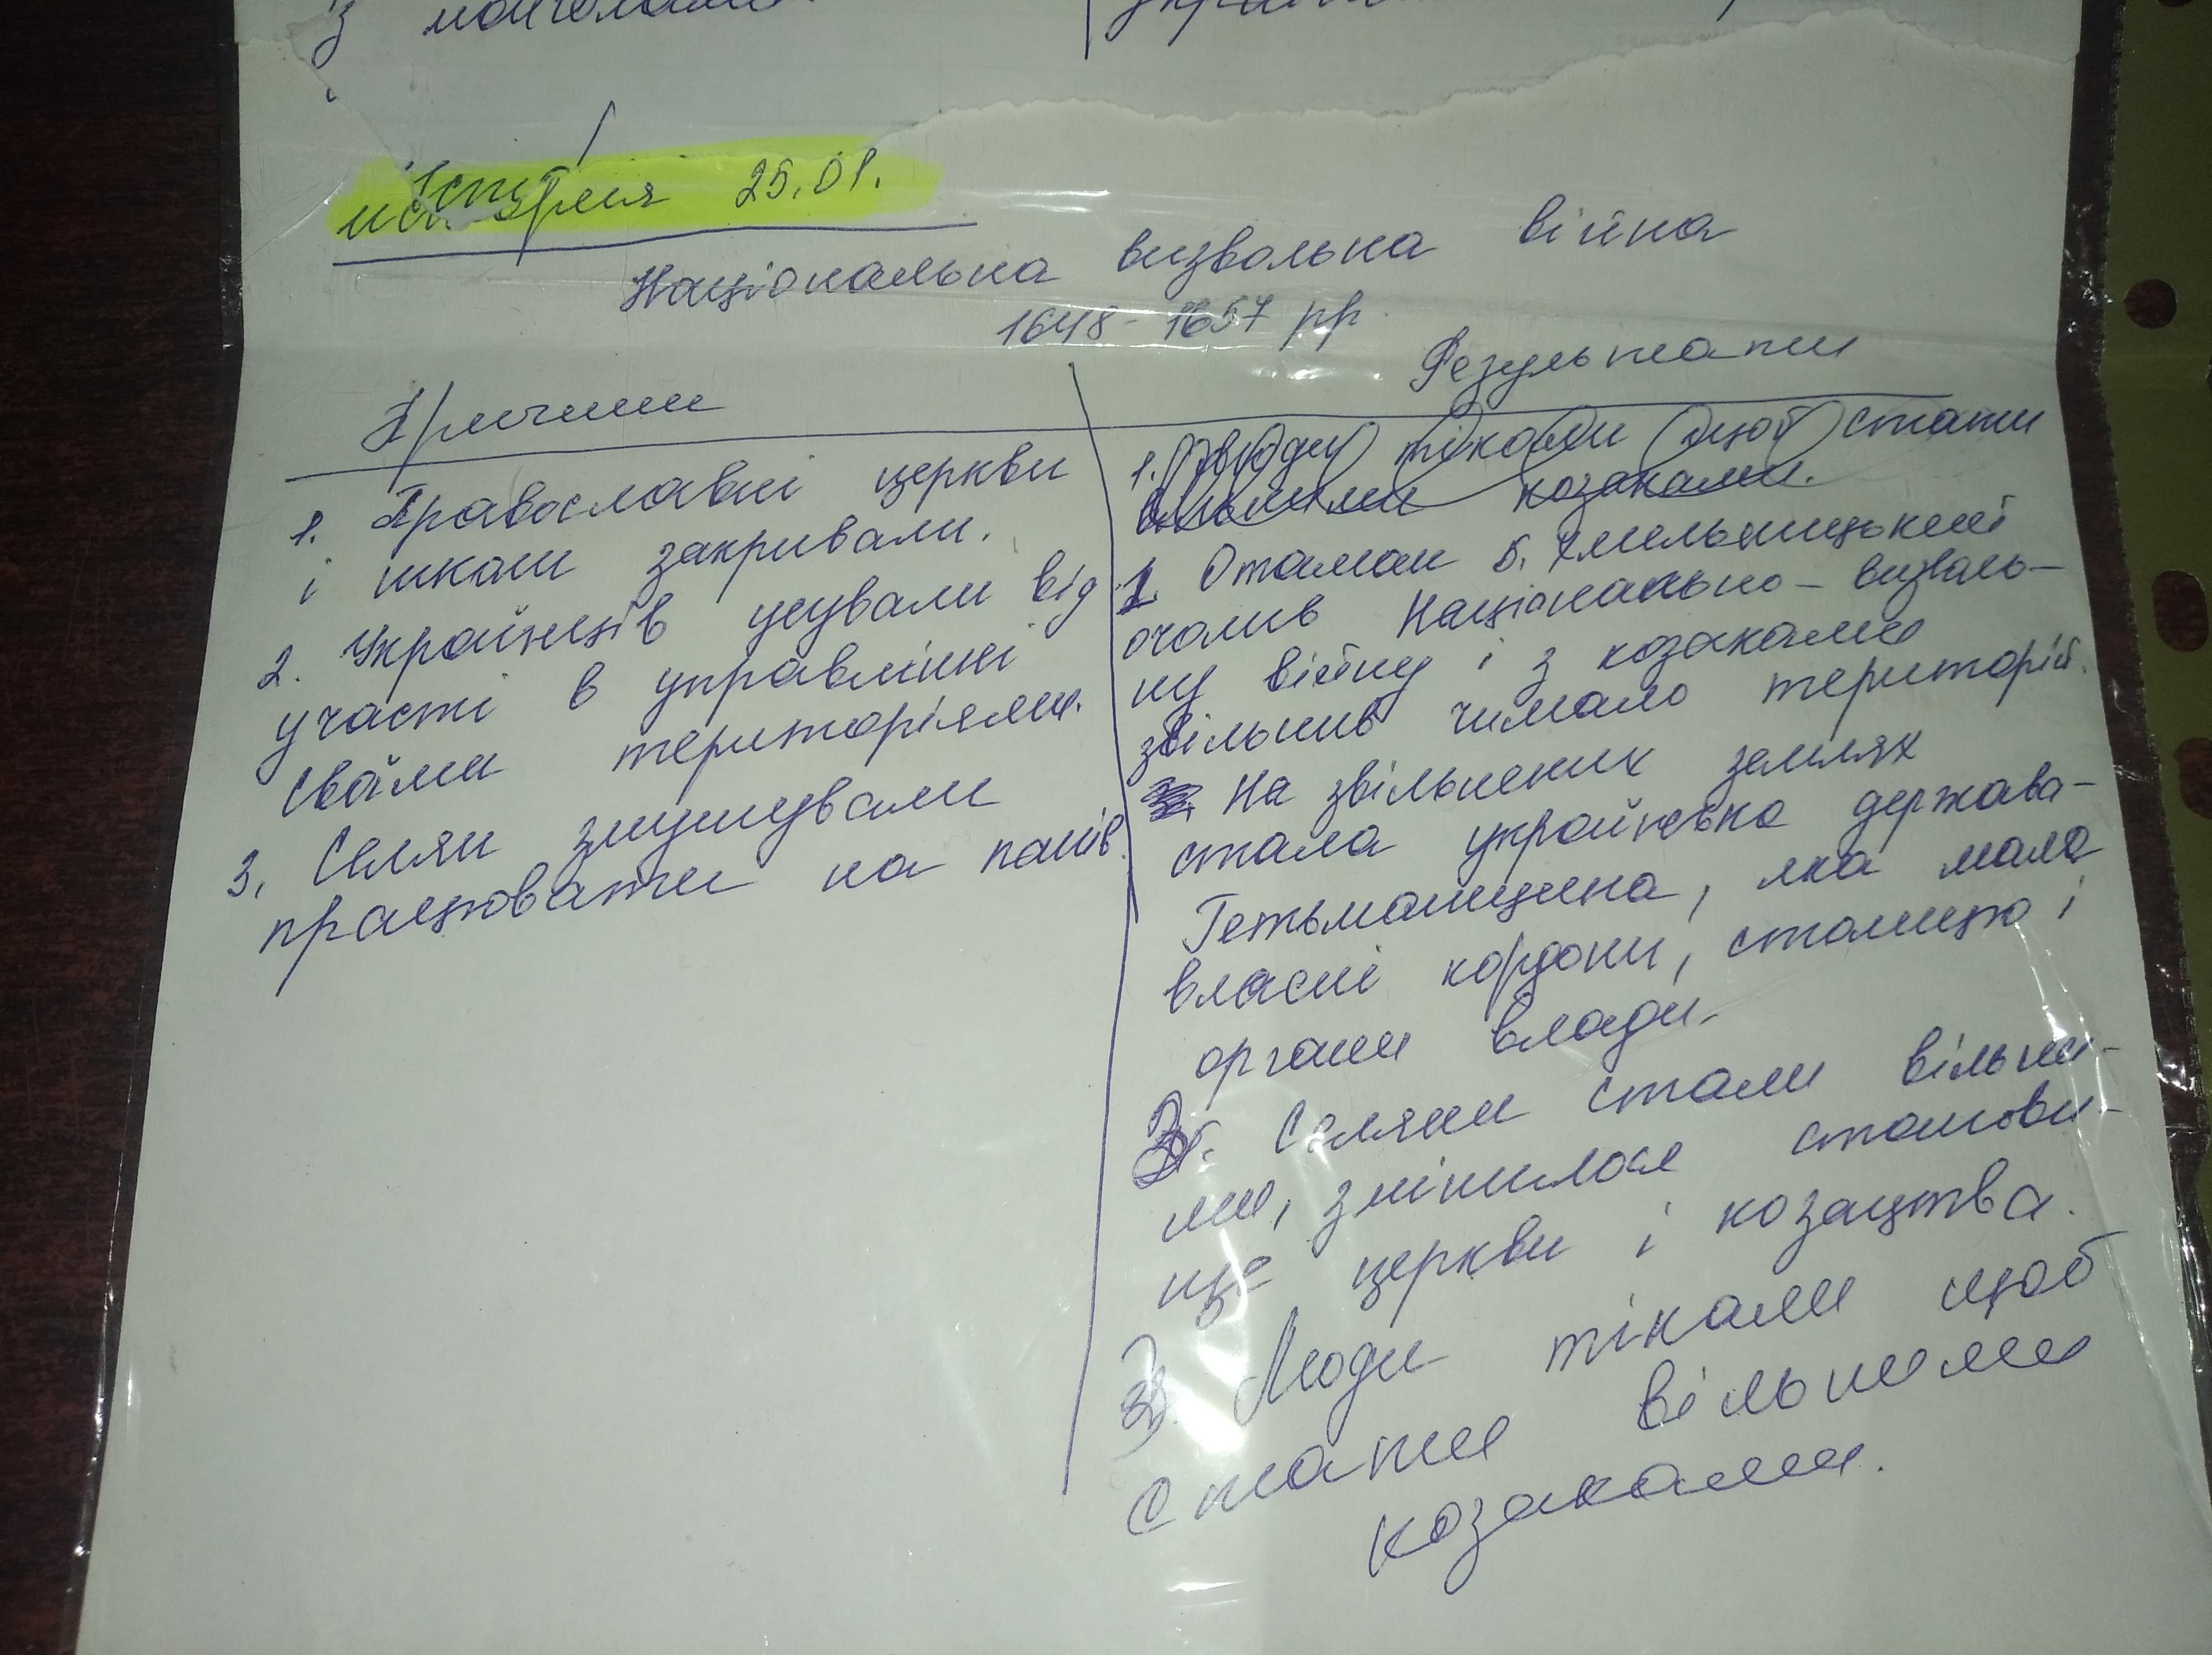 з монголами
Історія 25.01.
Національна визвольна війна
1648-1657 рр.
Причини
1. Православні церкви
і школи закривали.
2. Українців усували від
участі в управлінні
своїми територіями.
3. Селян змушували
працювати на панів.
Результати
1. Люди тікали щоб стати
вільними козаками.
1. Отаман Б. Хмельницький
очолив Національно-визволь-
ну війну і з козаками
звільнив чимало територій.
На звільнених землях
стала українська держава-
Гетьманщина, яка мала
власні кордони, столицю і
органи влади.
Селяни стали вільни-
ми, змінилося станови-
ще церкви і козацтва.
3. Люди тікали щоб
стати вільними
козаками.